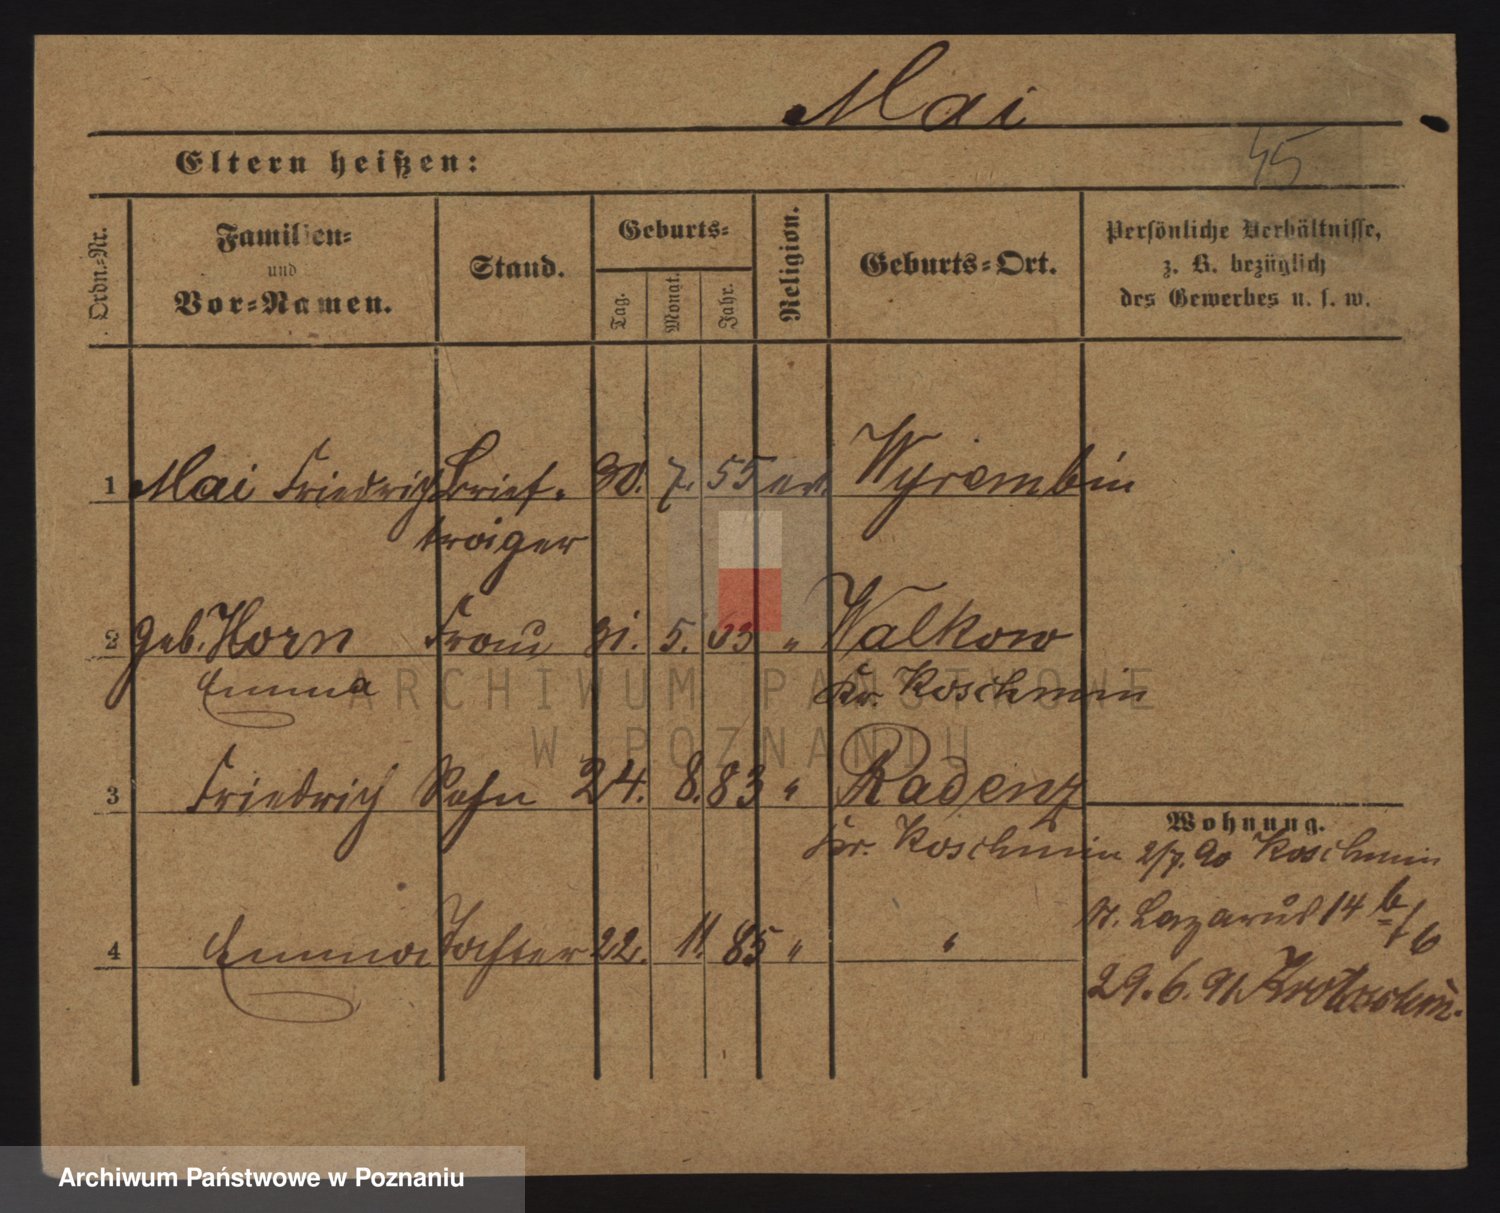 Mai
Eltern heißen:
45
Ordn.-Nr.
Familien-
und
Vor-Namen.
Stand.
Geburts-
Tag.
Monat.
Jahr.
Religion.
Geburts-Ort.
Persönliche Verhältnisse,
z. B. bezüglich
des Gewerbes u. s. w.
1 Mai Friedrich Brief- 30. 7. 55 ev. Wyrembin
träiger
2 geb. Horn Frau 31. 5. 63 " Walkow
Emma Kr. Koschmin
3 Friedrich Sohn 24. 8. 83 " Radenz
Kr. Koschmin
4 Emma Tochter 22. 11. 85 " "
Wohnung.
2/7. 90 Koschmin
St. Lazarus 14 b/6
29. 6. 91. Krotoschin.
ARCHIWUM PAŃSTWOWE
W POZNANIU
Archiwum Państwowe w Poznaniu